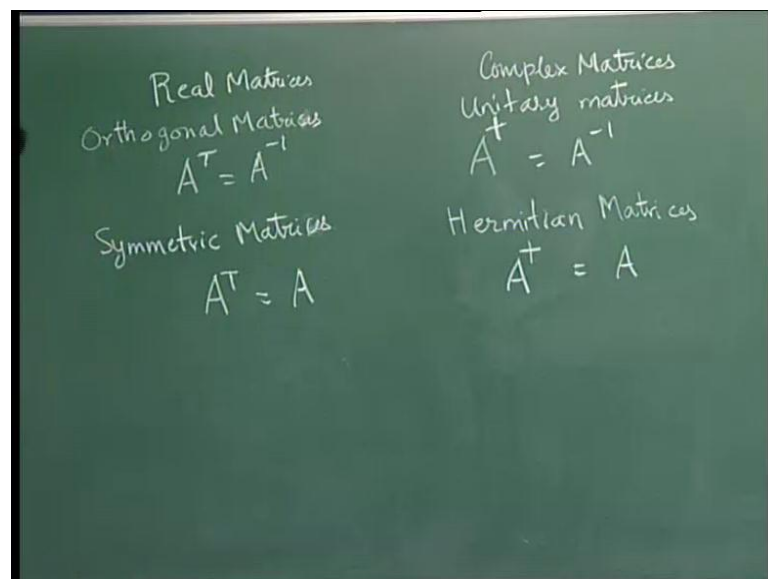 Real Matrices
Orthogonal Matrices
Aᵀ = A⁻¹
Symmetric Matrices
Aᵀ = A
Complex Matrices
Unitary matrices
A† = A⁻¹
Hermitian Matrices
A† = A